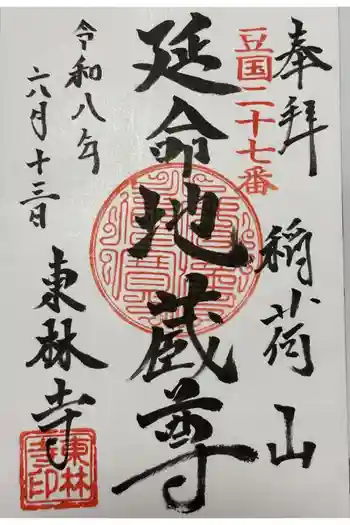 奉拝
稲荷山
豆国二十七番
延命地蔵尊
令和八年
六月十三日
東林寺
東林
寺印